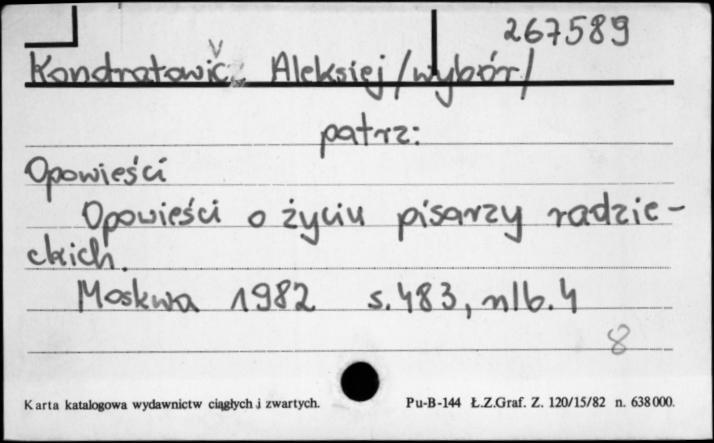 267589
Kondratowič Aleksiej /wybór/
patrz:
Opowieści
Opowieści o życiu pisarzy radzie-
ckich.
Moskwa 1982 s.483, nlb.4
8
Karta katalogowa wydawnictw ciągłych i zwartych. Pu-B-144 Ł.Z.Graf. Z. 120/15/82 n. 638000.